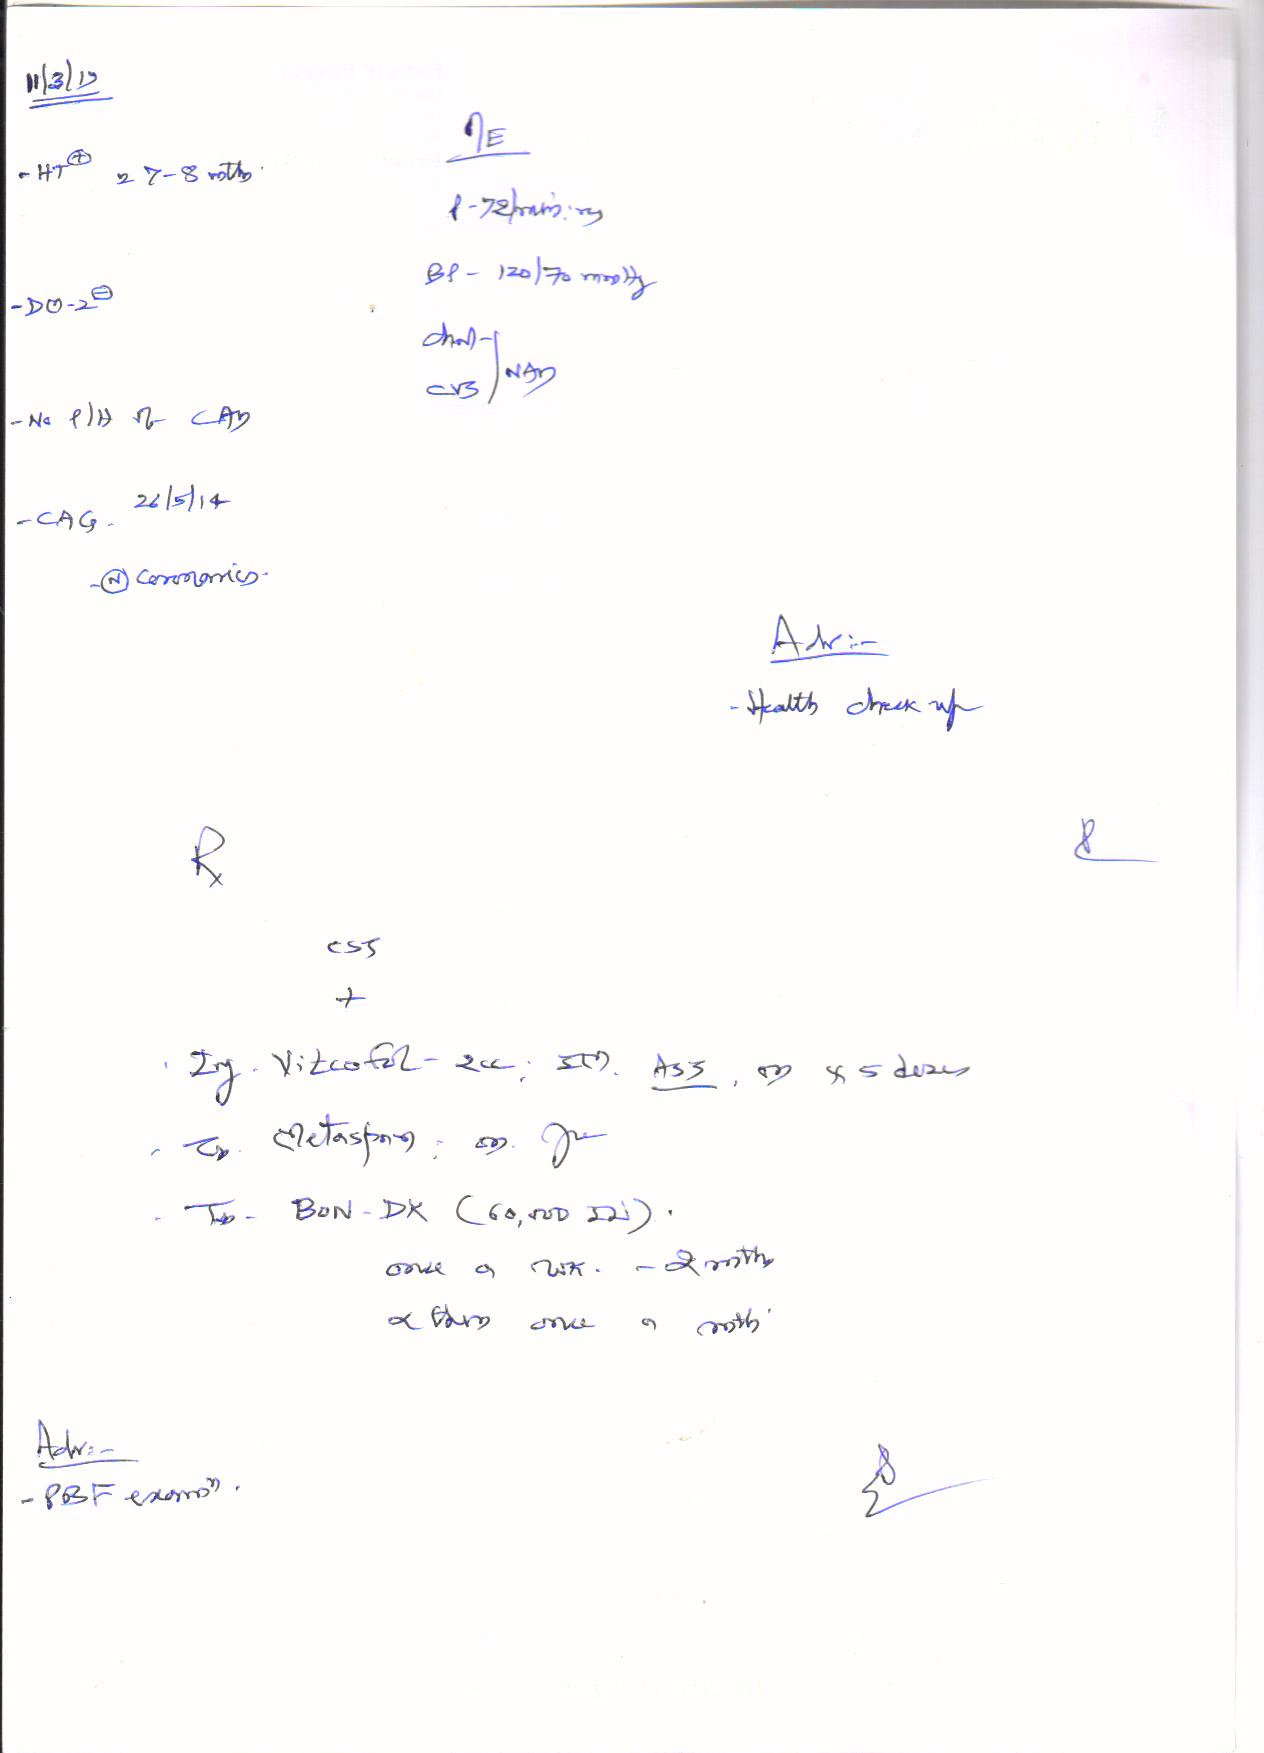 11/3/19
- HT⊕ 2 7-8 mths.
- DM-2⊖
- No F/H of CAD
- CAG. 26/5/14
- Ⓝ Coronaries.
O/E
P - 72/min. reg
BP - 120/70 mmHg
Chest - NAD
CVS
Adv:-
- Health check up
Rx
CST
+
Inj. Vitcofol - 2cc; I.M. AST, OD x 5 doses
Tab. Metaspan; OD.
Tab - BON-DK (60,000 IU).
once a wk. - 2 mths
& then once a mth.
Adv:-
- PBF examⁿ.